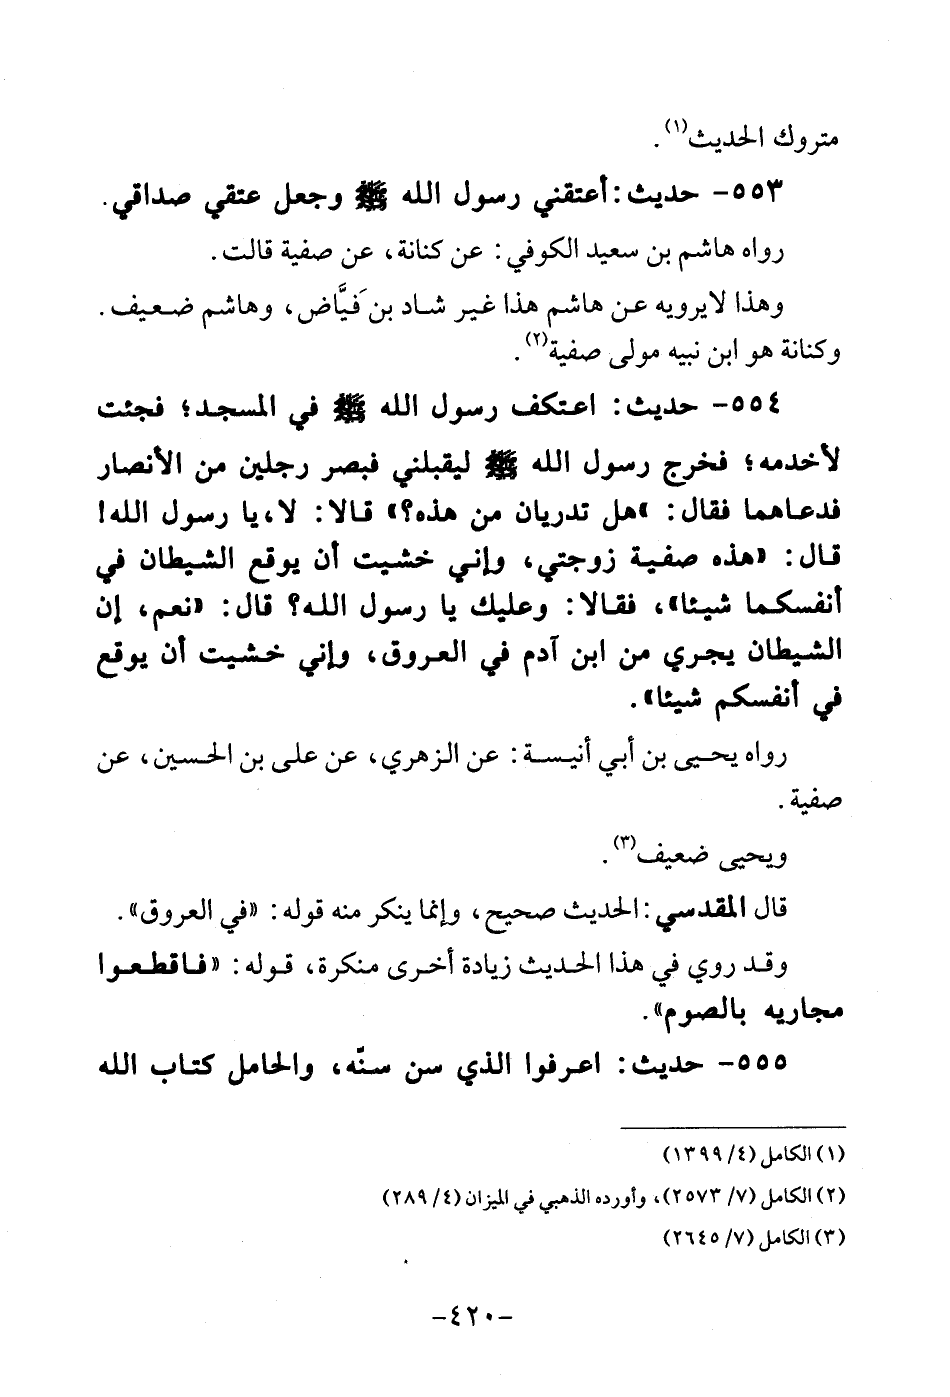 متروك الحديث(١).
٥٥٣- حديث: أعتقني رسول الله ﷺ وجعل عتقي صداقي.
رواه هاشم بن سعيد الكوفي: عن كنانة، عن صفية قالت.
وهذا لايرويه عن هاشم هذا غير شاد بن فَيَّاض، وهاشم ضعيف.
وكنانة هو ابن نبيه مولى صفية(٢).
٥٥٤- حديث: اعتكف رسول الله ﷺ في المسجد؛ فجئت
لأخدمه؛ فخرج رسول الله ﷺ ليقبلني فبصر رجلين من الأنصار
فدعاهما فقال: «هل تدريان من هذه؟» قالا: لا،يا رسول الله!
قال: «هذه صفية زوجتي، وإني خشيت أن يوقع الشيطان في
أنفسكما شيئا»، فقالا: وعليك يا رسول الله؟ قال: «نعم، إن
الشيطان يجري من ابن آدم في العروق، وإني خشيت أن يوقع
في أنفسكم شيئا».
رواه يحيى بن أبي أنيسة: عن الزهري، عن على بن الحسين، عن
صفية.
ويحيى ضعيف(٣).
قال المقدسي: الحديث صحيح، وإنما ينكر منه قوله: «في العروق».
وقد روي في هذا الحديث زيادة أخرى منكرة، قوله: «فاقطعوا
مجاريه بالصوم».
٥٥٥- حديث: اعرفوا الذي سن سنّه، والحامل كتاب الله
(١) الكامل (٤/ ١٣٩٩)
(٢) الكامل (٧/ ٢٥٧٣)، وأورده الذهبي في الميزان (٤/ ٢٨٩)
(٣) الكامل (٧/ ٢٦٤٥)
-٤٢٠-